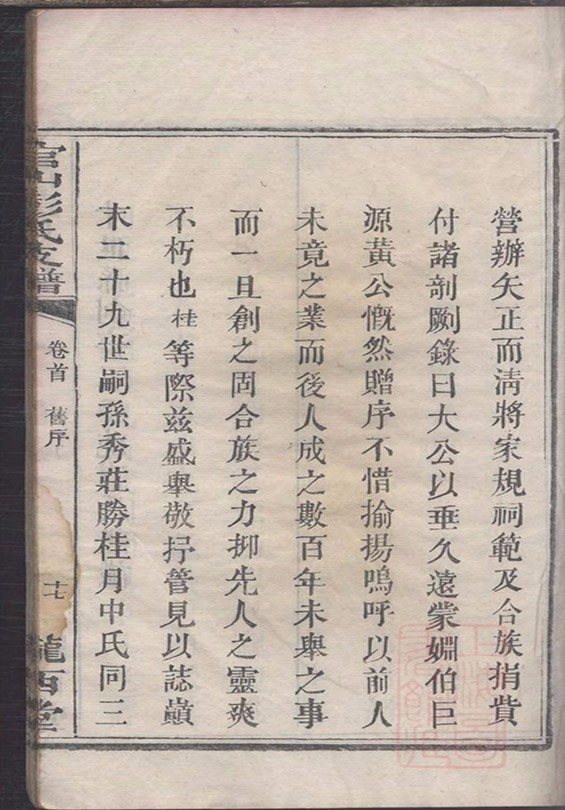 營辦矢正而淸將家規祠範及合族捐費
付諸剞劂錄曰大公以垂久遠蒙姻伯巨
源黃公慨然贈序不惜揄揚嗚呼以前人
未竟之業而後人成之數百年未舉之事
而一旦創之固合族之力抑先人之靈爽
不朽也桂等際兹盛舉敬抒管見以誌巔
末二十九世嗣孫秀莊勝桂月中氏同三
官山彭氏支譜
卷首 舊序
十七
隴西堂